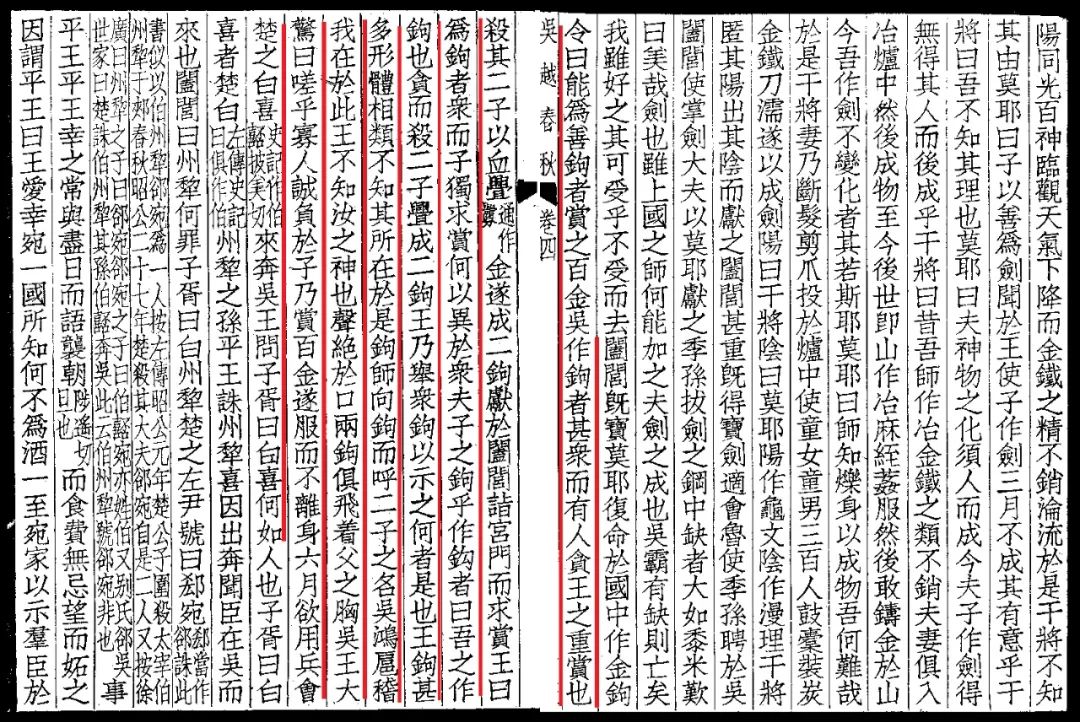 陽同光百神臨觀天氣下降而金鐵之精不銷淪流於是干將不知
其由莫耶曰子以善爲劍聞於王使子作劍三月不成其有意乎干
將曰吾不知其理也莫耶曰夫神物之化須人而成今夫子作劍得
無得其人而後成乎干將曰昔吾師作冶金鐵之類不銷夫妻俱入
冶爐中然後成物至今後世卽山作冶麻絰葌服然後敢鑄金於山
今吾作劍不變化者其若斯耶莫耶曰師知爍身以成物吾何難哉
於是干將妻乃斷髮剪爪投於爐中使童女童男三百人鼓橐裝炭
金鐵刀濡遂以成劍陽曰干將陰曰莫耶陽作龜文陰作漫理干將
匿其陽出其陰而獻之闔閭甚重旣得寶劍適會魯使季孫聘於吳
闔閭使掌劍大夫以莫耶獻之季孫拔劍之鋼中缺者大如黍米歎
曰美哉劍也雖上國之師何能加之夫劍之成也吳霸有缺則亡矣
我雖好之其可受乎不受而去闔閭旣寶莫耶復命於國中作金鉤
令曰能爲善鉤者賞之百金吳作鉤者甚衆而有人貪王之重賞也
吳越春秋 卷四
殺其二子以血舋通作釁金遂成二鉤獻於闔閭詣宮門而求賞王曰
爲鉤者衆而子獨求賞何以異於衆夫子之鉤乎作鉤者曰吾之作
鉤也貪而殺二子舋成二鉤王乃舉衆鉤以示之何者是也王鉤甚
多形體相類不知其所在於是鉤師向鉤而呼二子之名吳鴻扈稽
我在於此王不知汝之神也聲絕於口兩鉤俱飛着父之胸吳王大
驚曰嗟乎寡人誠負於子乃賞百金遂服而不離身六月欲用兵會
楚之白喜史記作伯嚭披美切來奔吳王問子胥曰白喜何如人也子胥曰白
喜者楚白左傳史記白俱作伯州犂之孫平王誅州犂喜因出奔聞臣在吳而
來也闔閭曰州犂何罪子胥曰白州犂楚之左尹號曰郄宛郄當作郤誅此
書似以伯州犂郤宛爲一人按左傳昭公元年楚公子圍殺太宰伯
州犂于郟春秋昭公二十七年楚殺其大夫郤宛自是二人又按徐
廣曰州犂之子曰郤宛郤宛之子曰伯嚭宛亦姓伯又別氏郤吳
世家曰楚誅伯州犂其孫伯嚭奔吳此云伯州犂號郤宛非也
事
平王平王幸之常與盡日而語襲朝陟遙切旦也而食費無忌望而妬之
因謂平王曰王愛幸宛一國所知何不爲酒一至宛家以示羣臣於